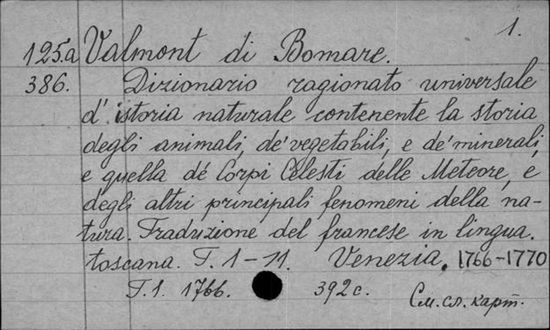 1.
125.a Valmont di Bomare.
386. Dizionario ragionato universale
d' istoria naturale contenente la storia
degli animali, de' vegetabili, e de' minerali,
e quella dé Corpi Celesti delle Meteore, e
degli altri principali fenomeni della na-
tura. Traduzione del francese in lingua.
toscana. T. 1-11. Venezia. 1766-1770
T.1. 1766. 392 c. См. сл. карт.